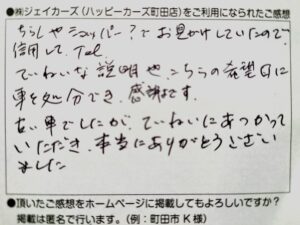 ●㈱ジェイカーズ(ハッピーカーズ町田店)をご利用になられたご感想
ちらしやショッパー?でお見かけしていたので
信用して、Tel
ていねいな説明や、こちらの希望日に
車を処分でき、感謝です。
古い車でしたが、ていねいにあつかって
いただき、本当にありがとうござい
ました
●頂いたご感想をホームページに掲載してもよろしいですか?
掲載は匿名で行います。(例:町田市 K 様)